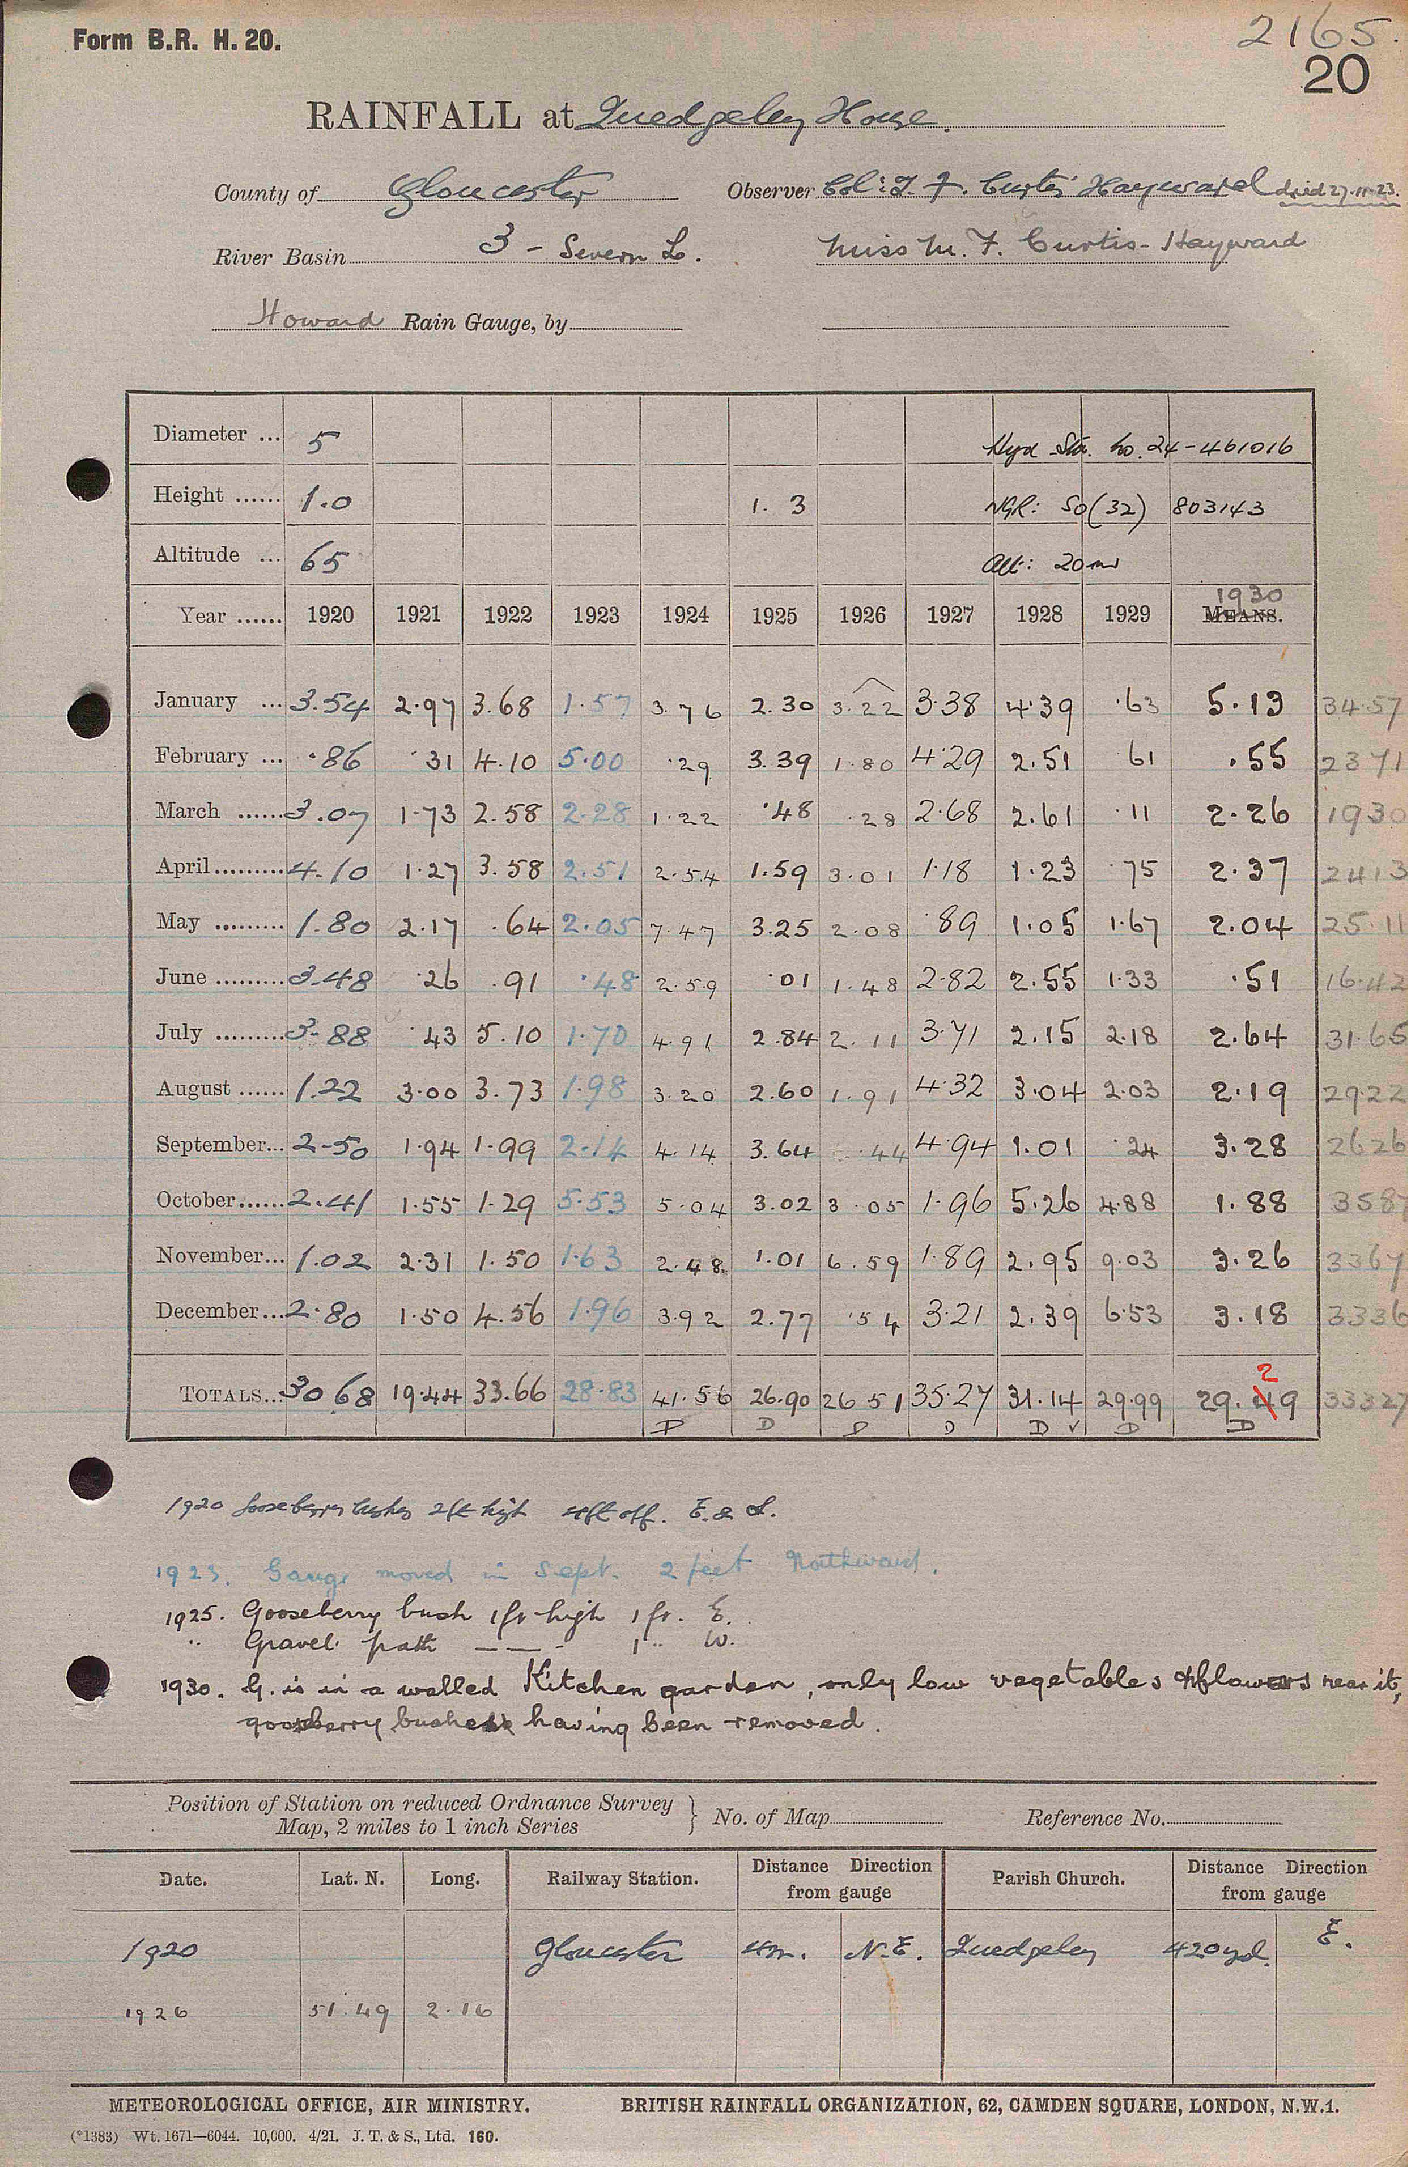 Form B.R. H. 20.
2165.
20
RAINFALL at Quedgeley House.
County of Gloucester Observer Col: J. F. Curtis Hayward died 27.11.23.
River Basin 3 - Severn L. Miss M. F. Curtis-Hayward
Howard Rain Gauge, by
Diameter ... 5 Hyd Sta. no. 24-461016
Height ...... 1.0 1.3 NGR: SO(32) 803143
Altitude ... 65 Alt: 20m
1930
Year ...... 1920 1921 1922 1923 1924 1925 1926 1927 1928 1929 MEANS.
January ... 3.54 2.97 3.68 1.57 3.76 2.30 3.22 3.38 4.39 .63 5.13 34.57
February ... .86 .31 4.10 5.00 .29 3.39 1.80 4.29 2.51 61 .55 2371
March ...... 3.07 1.73 2.58 2.28 1.22 .48 .28 2.68 2.61 .11 2.26 1930
April......... 4.10 1.27 3.58 2.51 2.54 1.59 3.01 1.18 1.23 .75 2.37 2413
May ......... 1.80 2.17 .64 2.05 7.47 3.25 2.08 .89 1.05 1.67 2.04 25.11
June ......... 3.48 .26 .91 .48 2.59 .01 1.48 2.82 2.55 1.33 .51 16.42
July ......... 3.88 .43 5.10 1.70 4.91 2.84 2.11 3.71 2.15 2.18 2.64 31.65
August ...... 1.22 3.00 3.73 1.98 3.20 2.60 1.91 4.32 3.04 2.03 2.19 2922
September... 2.50 1.94 1.99 2.14 4.14 3.64 .44 4.94 1.01 .24 3.28 2626
October...... 2.41 1.55 1.29 5.53 5.04 3.02 3.05 1.96 5.26 4.88 1.88 3587
November... 1.02 2.31 1.50 1.63 2.48 1.01 6.59 1.89 2.95 9.03 3.26 3367
December... 2.80 1.50 4.56 1.96 3.92 2.77 .54 3.21 2.39 6.53 3.18 3336
2
TOTALS... 30 68 19.44 33.66 28.83 41.56 26.90 26 51 35.27 31.14 29.99 29.49 33327
D D D D D ✓ D D
1920 Gooseberry bushes 2ft high 4ft off. E. & S.
1923. Gauge moved in Sept. 2 feet Northward.
1925. Gooseberry bush 1ft high 1 ft. E.
" Gravel path — — - 1 " W.
1930. G. is in a walled Kitchen garden, only low vegetables & flowers near it,
gooseberry bushes having been removed.
Position of Station on reduced Ordnance Survey
Map, 2 miles to 1 inch Series } No. of Map Reference No.
Date. Lat. N. Long. Railway Station. Distance Direction from gauge Parish Church. Distance Direction from gauge
1920 Gloucester 4m. N.E. Quedgeley 420yd. E.
1926 51.49 2.16
METEOROLOGICAL OFFICE, AIR MINISTRY. BRITISH RAINFALL ORGANIZATION, 62, CAMDEN SQUARE, LONDON, N.W.1.
(*1383) Wt. 1671—6044. 10,000. 4/21. J. T. & S., Ltd. 160.